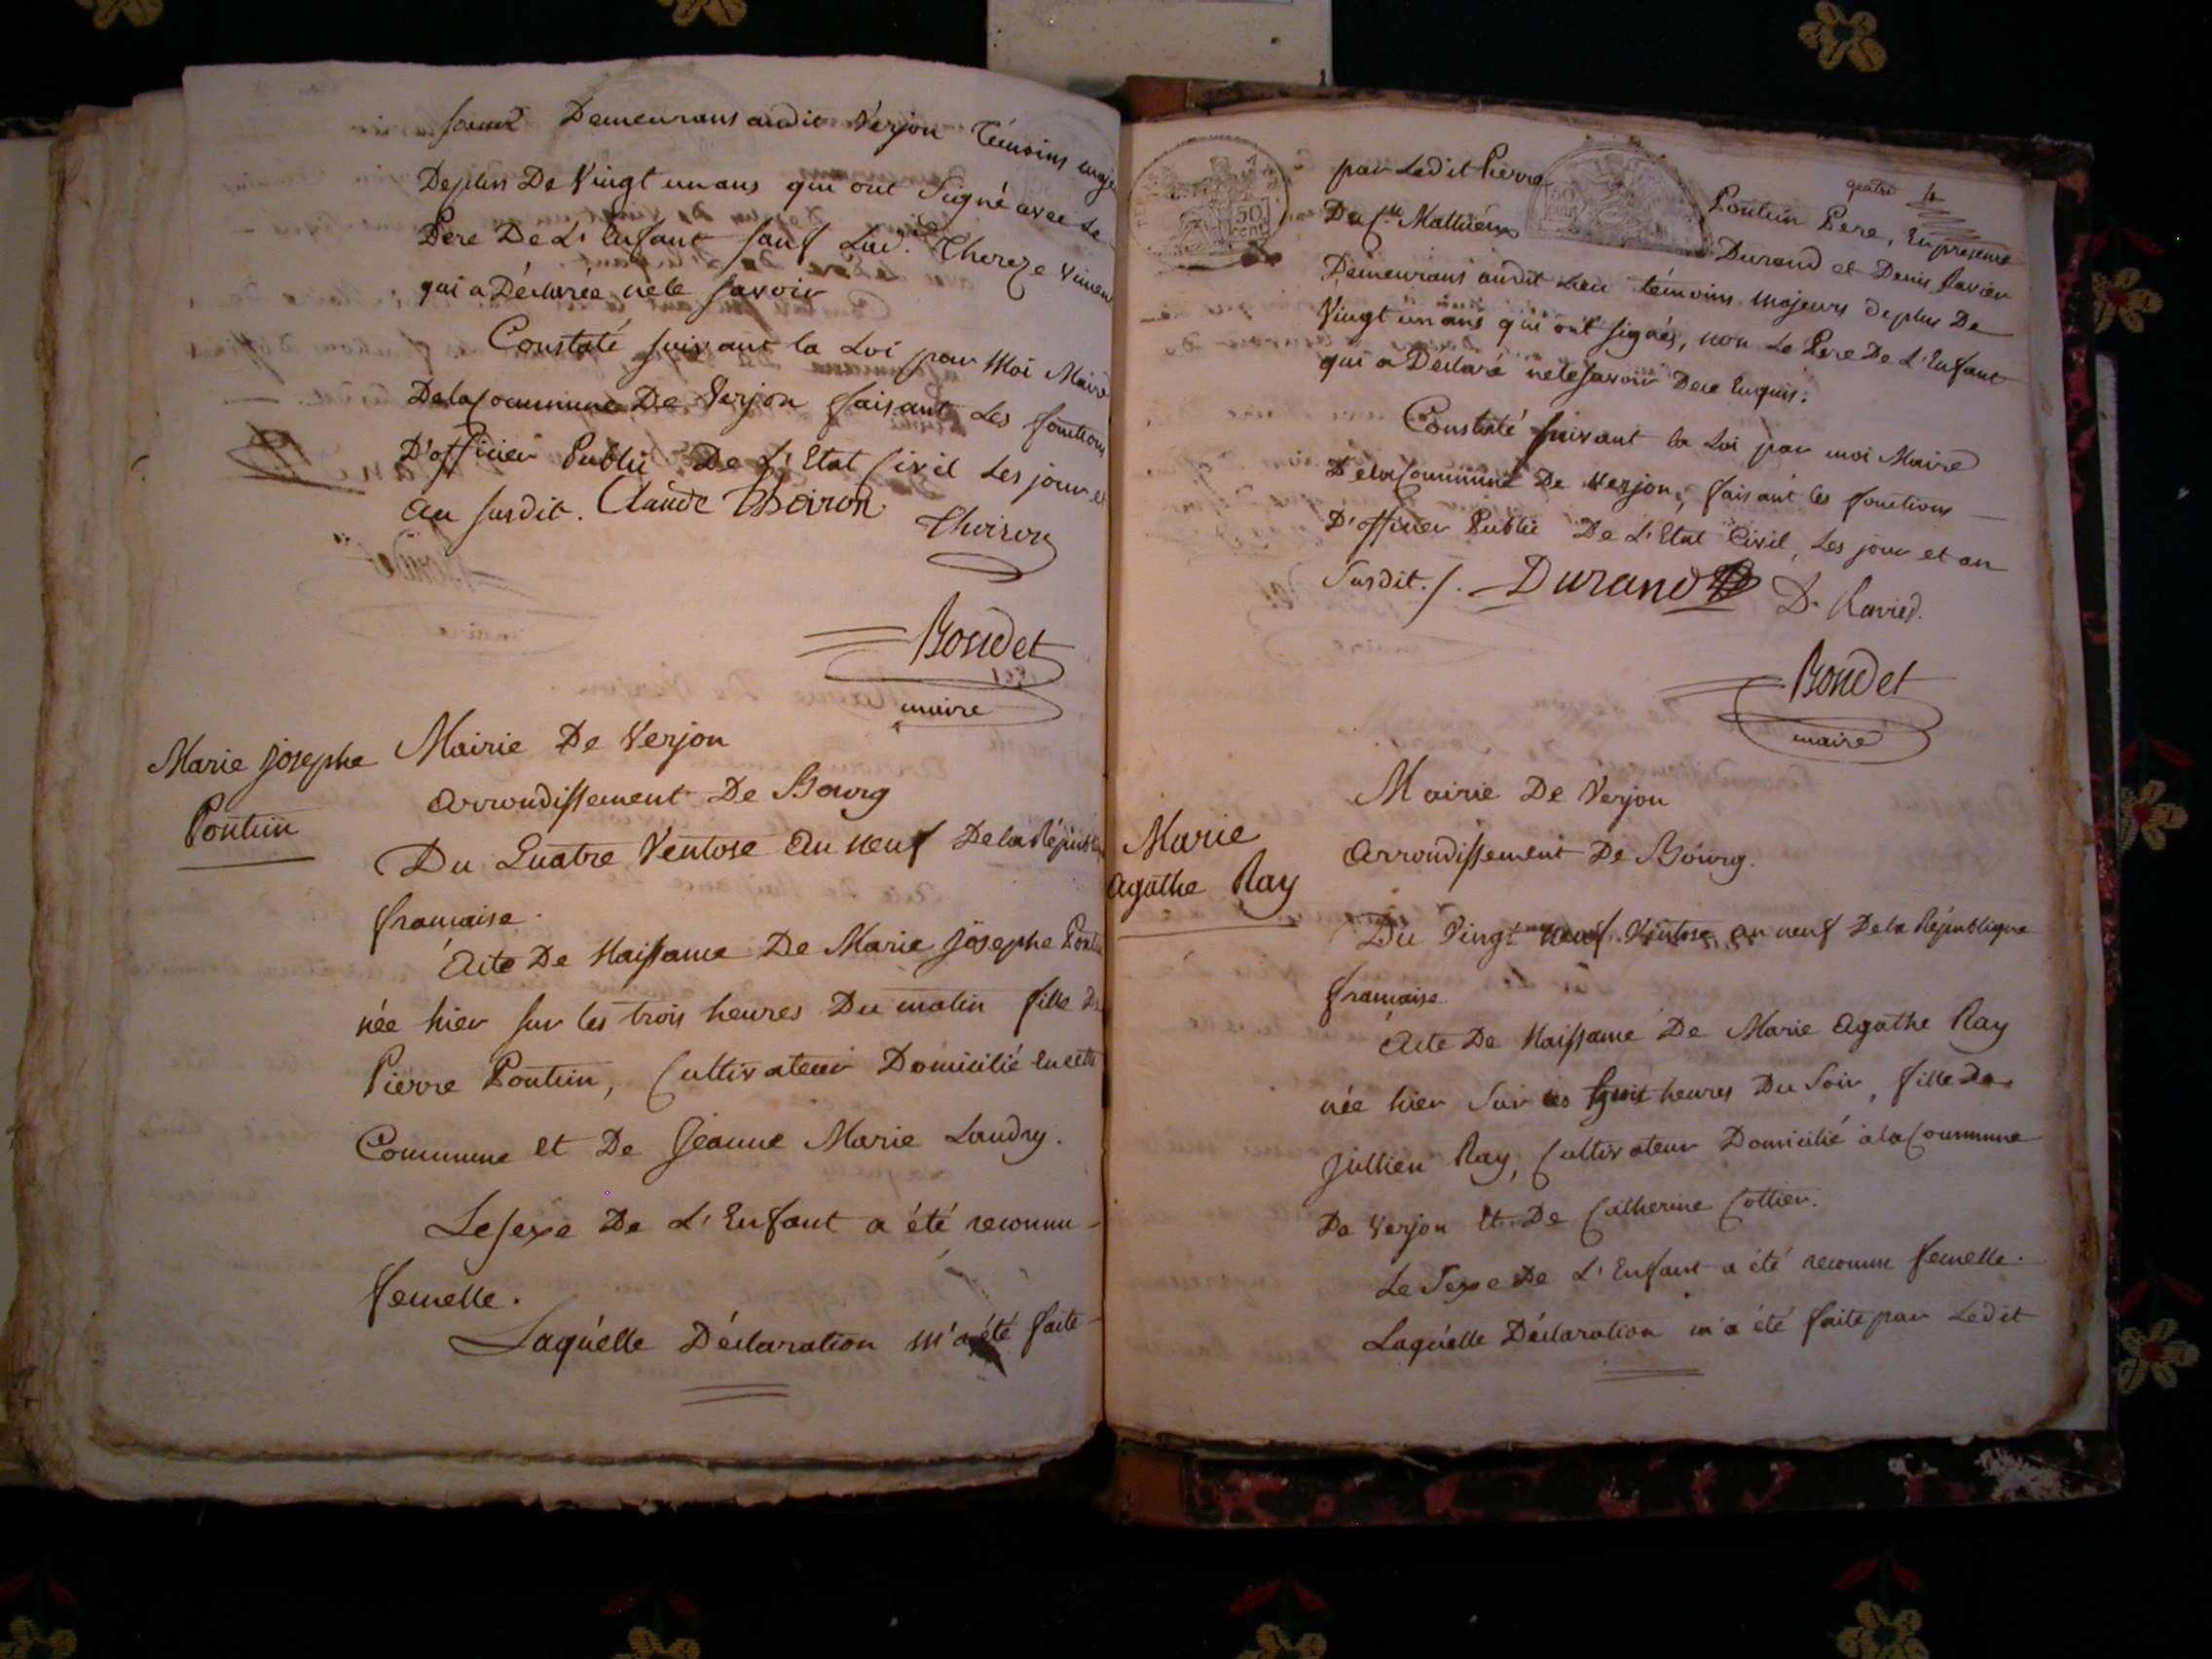 Demeurans audit Verjon Témoins maje
Deplus De Vingt un ans qui ont Signé avec Le
Pere De L'Enfant sauf Lad. Thereze Vincen
qui a Déclarée nele savoir
Constaté suivant la Loi par Moi Maire
Dela Commune De Verjon faisant Les fonctions
D'officier Public De L'Etat Civil Les jour et
an susdit. Claude Thoiron
Thoiron
Bondet
maire
Marie Josephe
Pontun
Mairie De Verjon
arrondissement De Bourg
Du Quatre Ventose an neuf Dela Répub
francaise.
Acte De Naissance De Marie Josephe Pont
née hier sur les trois heures Du matin fille De
Pierre Pontun, Cultivateur Domicilié en cette
Commune et De Jeanne Marie Landry.
Le sexe De L'Enfant a été reconnu
femelle.
Laquelle Déclaration m'a été faite
quatre 4
par Ledit Pierre Pontun Pere, En presence
50 cent
50 cent
Du Mathieu Durand et Denis Ravier
Demeurans audit Lieu témoins majeurs deplus De
Vingt un ans qui ont signés, non Le Pere De L'Enfant
qui a Déclaré nele savoir De ce Enquis.
Constaté suivant la Loi par moi Maire
Dela Commune De Verjon, faisant les fonctions
D'officier Public De L'Etat Civil, Les jour et an
Susdit. /. Durand D. Ravier.
Bondet
maire
Marie
agathe Ray
Mairie De Verjon
arrondissement De Bourg.
Du Vingt neuf Ventose an neuf Dela République
francaise
Acte De Naissance De Marie Agathe Ray
née hier Sur les huit heures Du Soir, fille De
Jullien Ray, Cultivateur Domicilié à la Commune
De Verjon Et De Catherine Cottier.
Le Sexe De L'Enfant a été reconnu femelle.
Laquelle Déclaration m'a été faite par Ledit